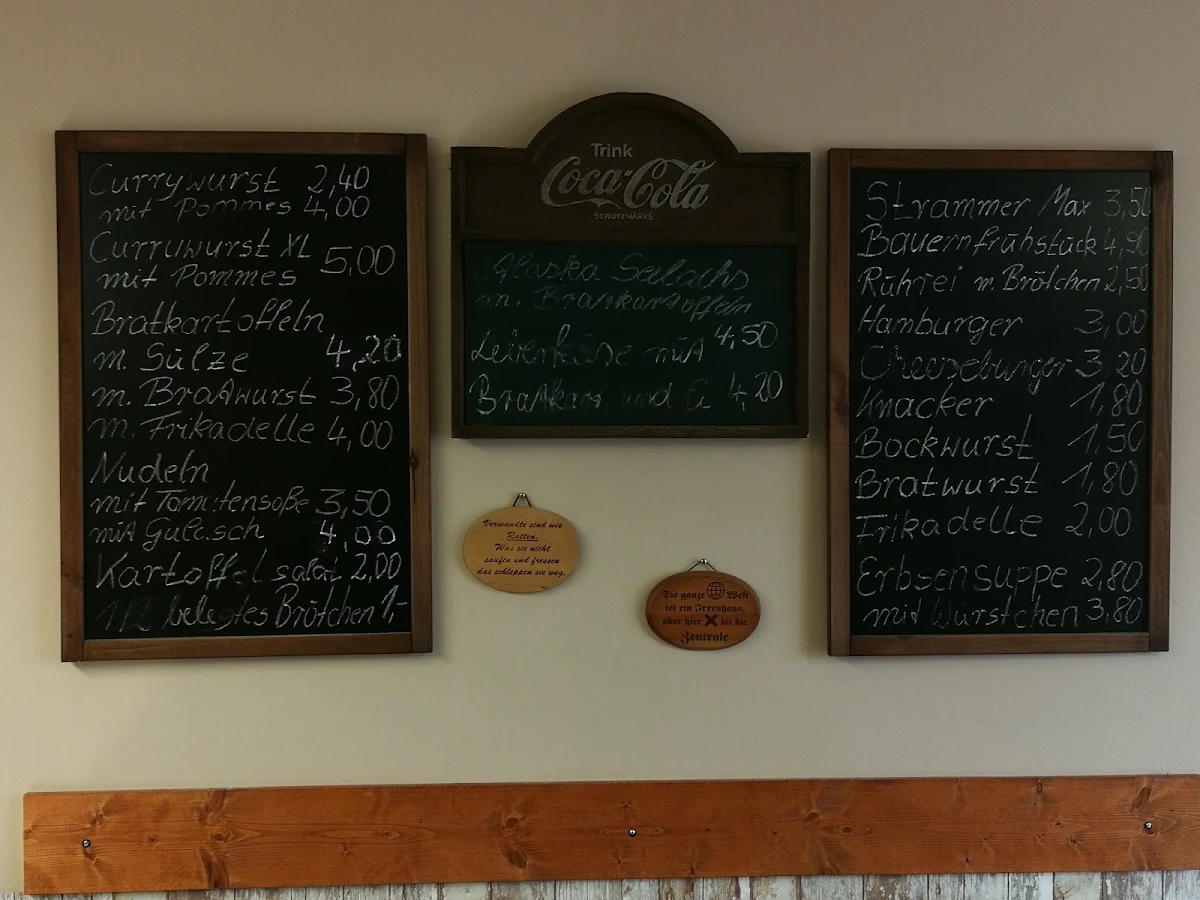 Currywurst 2,40
mit Pommes 4,00
Currywurst XL
mit Pommes 5,00
Bratkartoffeln
m. Sülze 4,20
m. Bratwurst 3,80
m. Frikadelle 4,00
Nudeln
mit Tomatensoße 3,50
mit Gulasch 4,00
Kartoffelsalat 2,00
1/2 belegtes Brötchen 1,-
Trink
Coca-Cola
SCHUTZMARKE
Alaska Seelachs
m. Bratkartoffeln 4,50
Leberkäse mit
Bratkart und Ei 4,20
Verwandte sind wie
Ratten.
Was sie nicht
saufen und fressen
das schleppen sie weg.
Die ganze Welt
ist ein Irrenhaus,
aber hier ist die
Zentrale
Strammer Max 3,50
Bauernfrühstück 4,90
Rührei m. Brötchen 2,50
Hamburger 3,00
Cheeseburger 3,20
Knacker 1,80
Bockwurst 1,50
Bratwurst 1,80
Frikadelle 2,00
Erbsensuppe 2,80
mit Würstchen 3,80